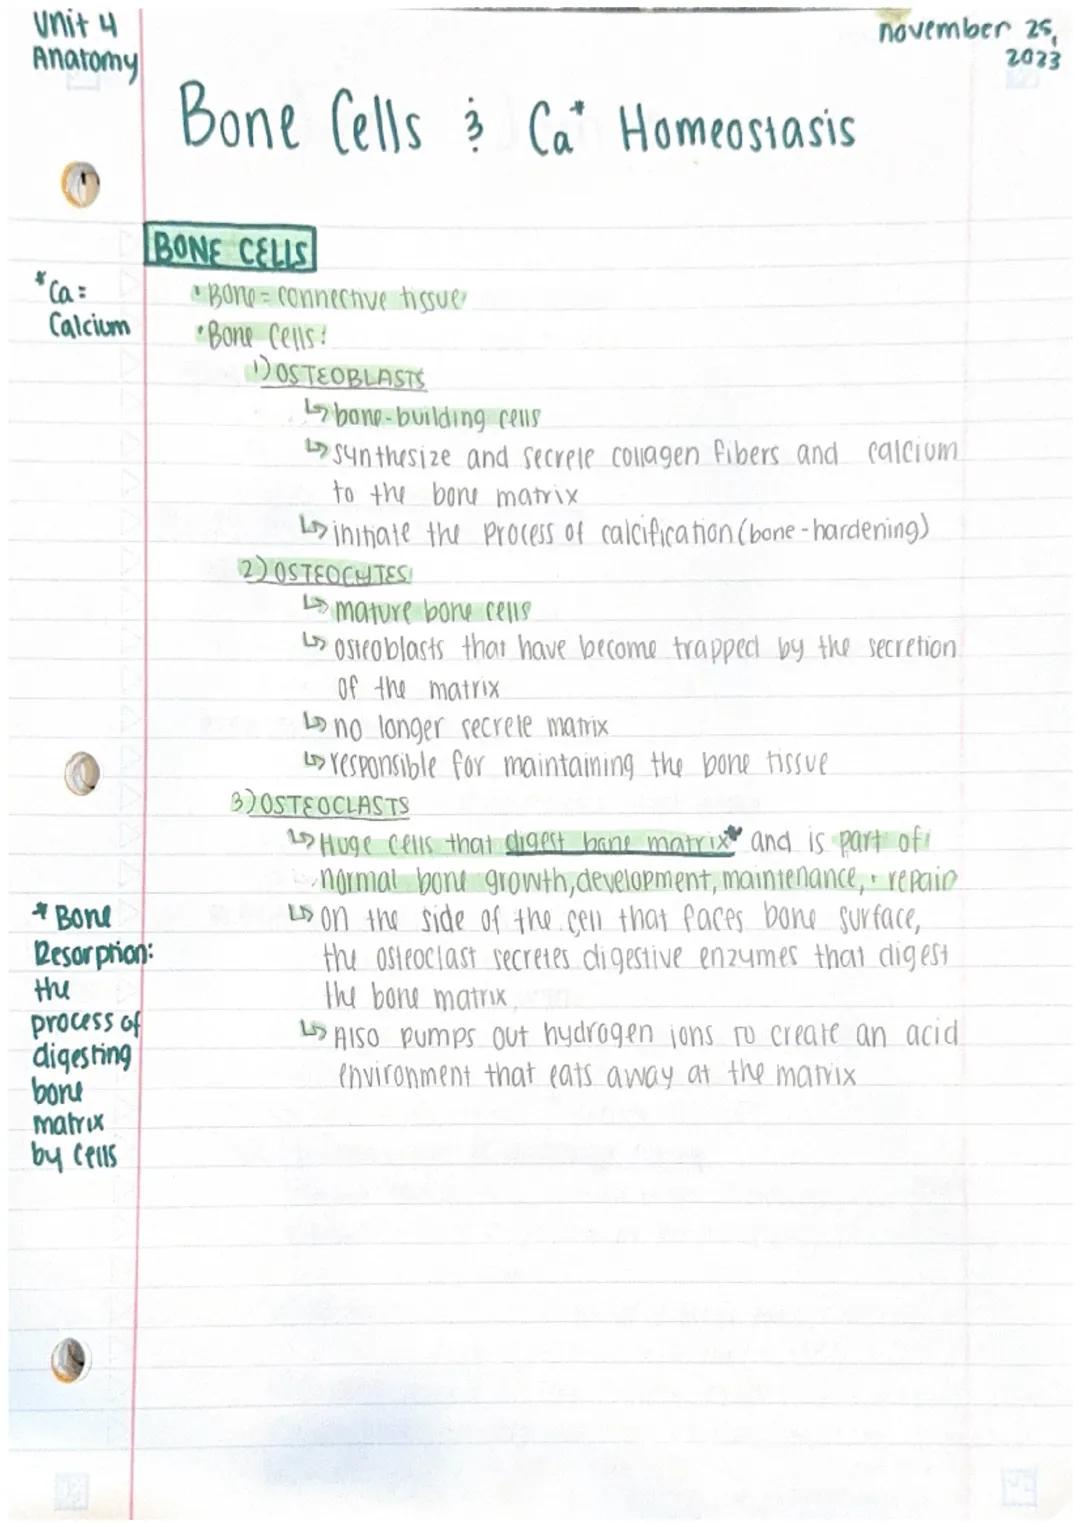 Unit 4
Anatomy
november 25,
2023
Bone Cells & Ca* Homeostasis
BONE CELLS
*Ca =
Calcium
• Bone = connective tissue
• Bone Cells:
1) OSTEOBLASTS
↳ bone-building cells
↳ synthesize and secrete collagen fibers and calcium
to the bone matrix
↳ initiate the process of calcification (bone-hardening)
2) OSTEOCYTES
↳ mature bone cells
↳ osteoblasts that have become trapped by the secretion
of the matrix
↳ no longer secrete matrix
↳ responsible for maintaining the bone tissue
3) OSTEOCLASTS
↳ Huge cells that digest bone matrix* and is part of
normal bone growth, development, maintenance, + repair
↳ on the side of the cell that faces bone surface,
the osteoclast secretes digestive enzymes that digest
the bone matrix
↳ Also pumps out hydrogen ions to create an acid
environment that eats away at the matrix
* Bone
Resorption:
the
process of
digesting
bone
matrix
by cells